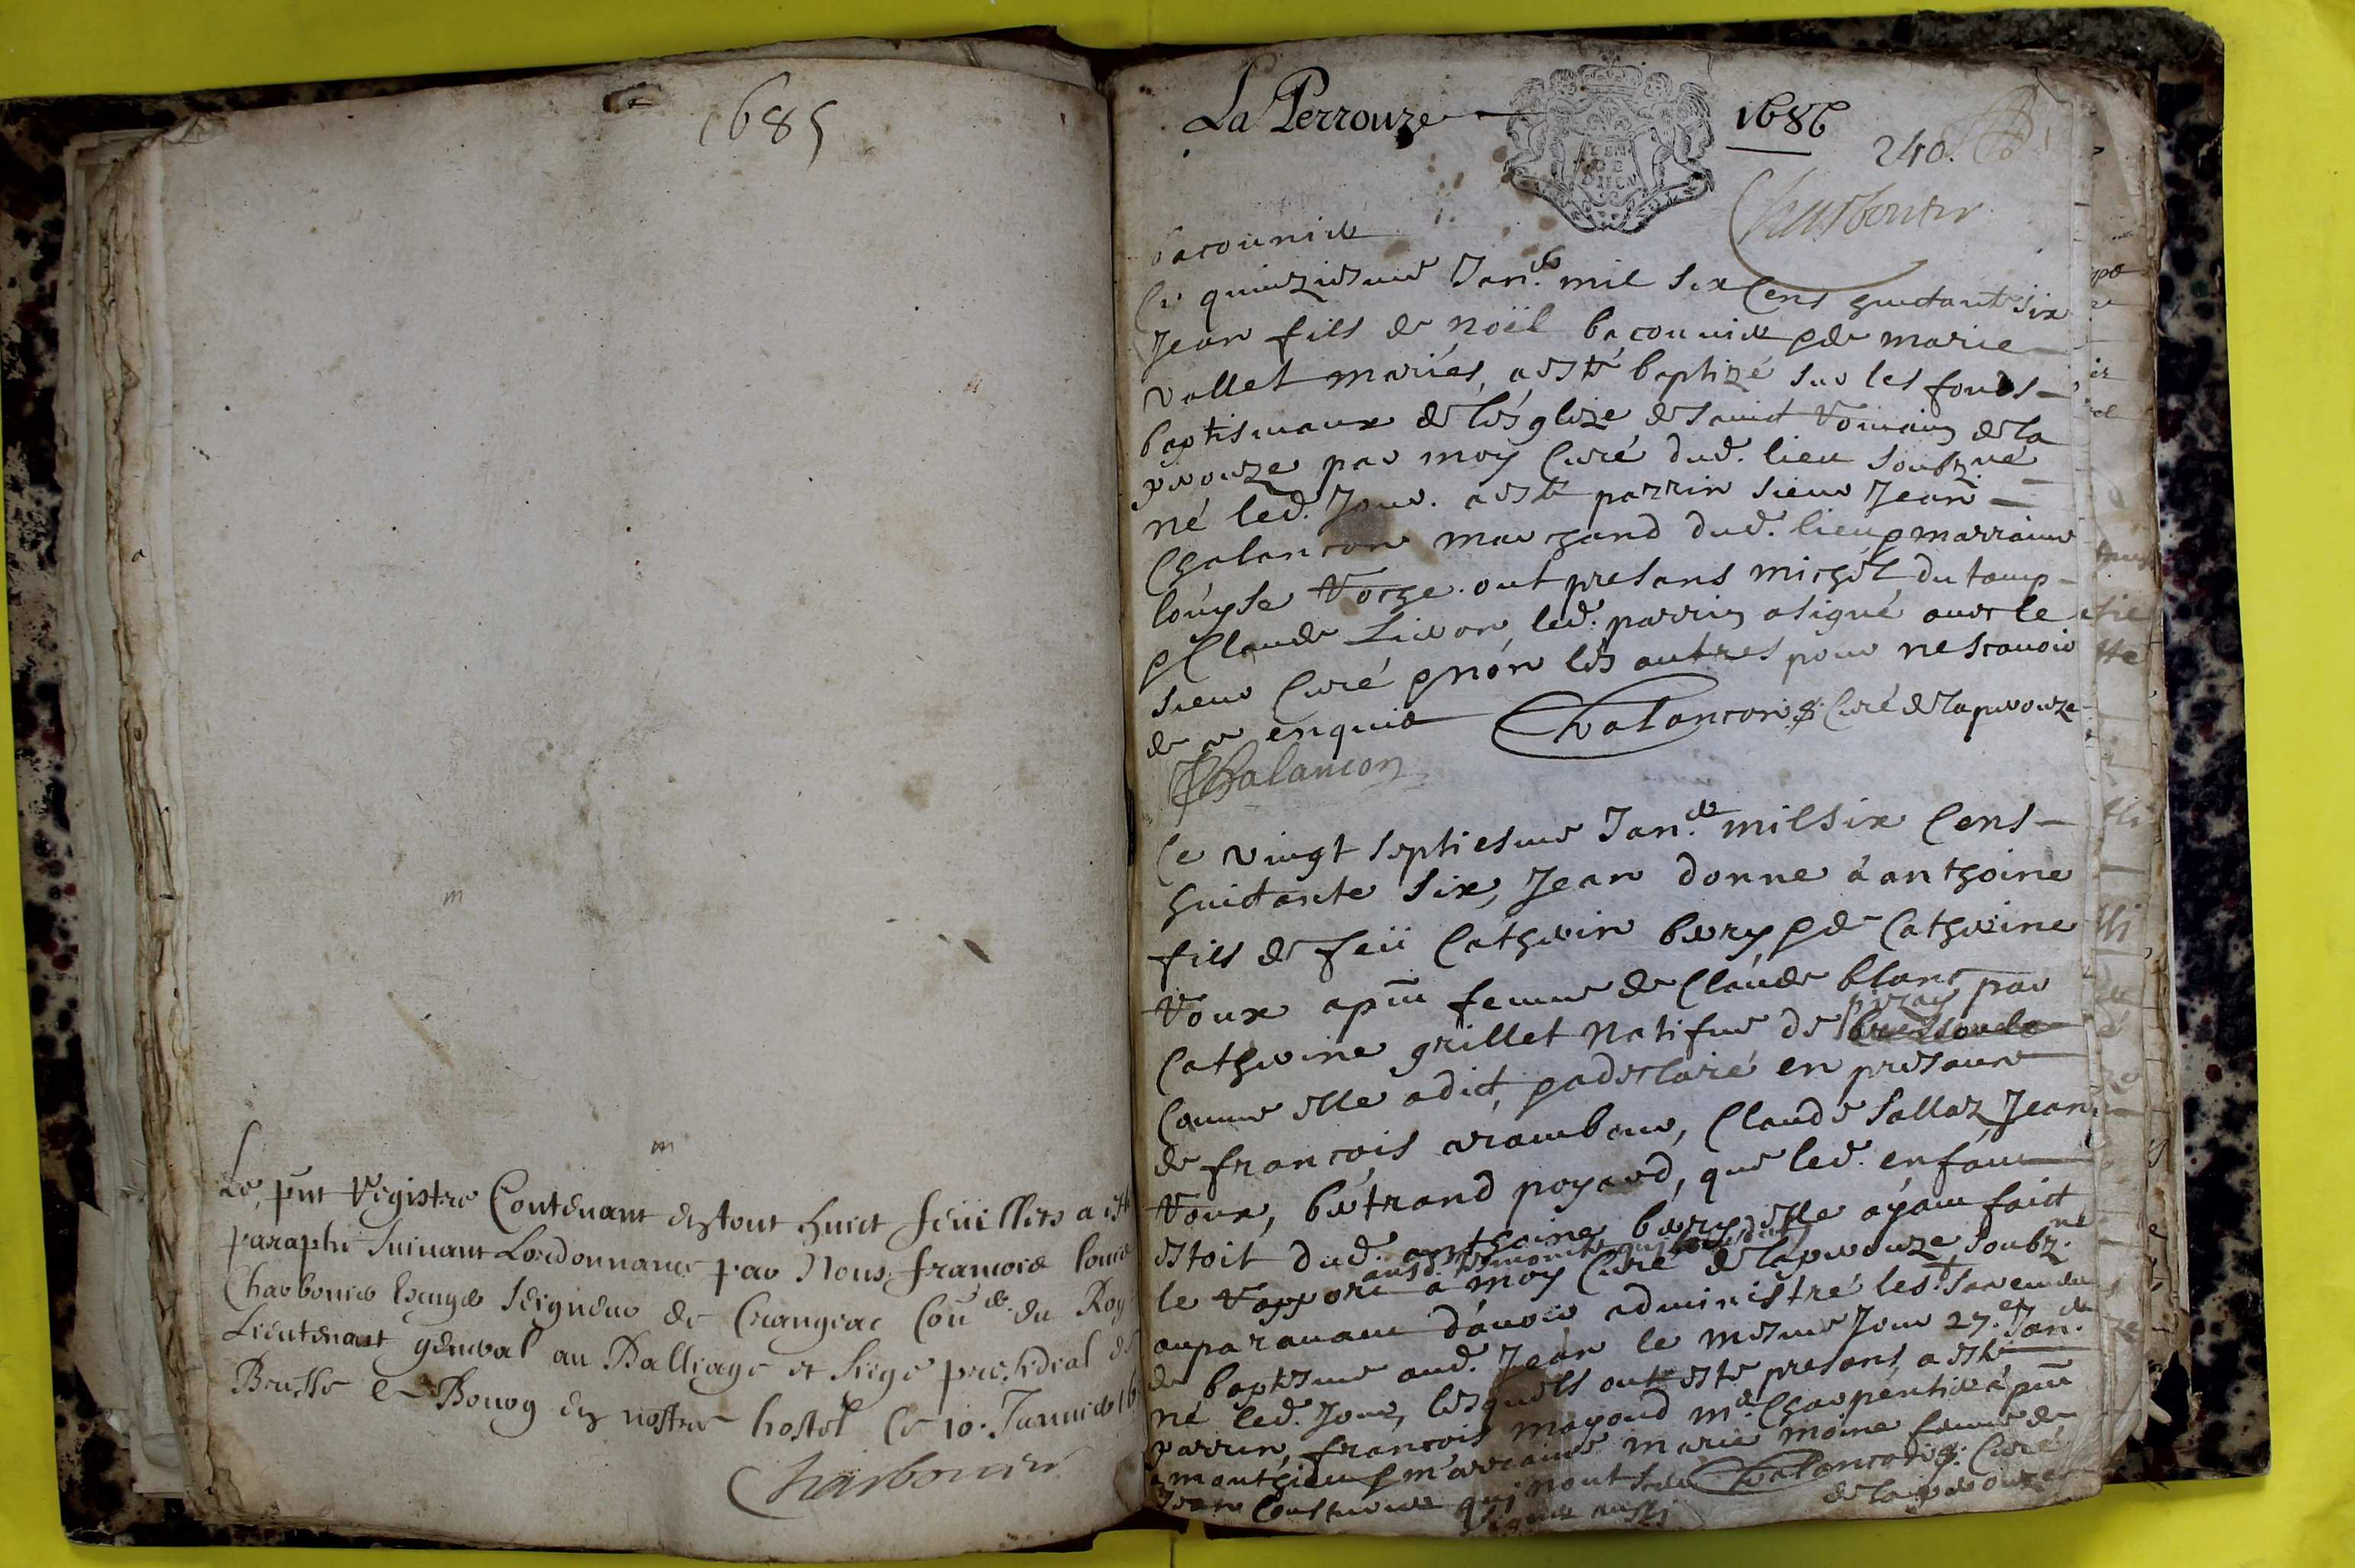 1685
Le pnt registre Contenant en tout huict feuillets a esté
paraphé suivant Lordonnance par Nous françois louis
Charbonnier Seigneur de Crangeac Coner du Roy
Lieutenant general au Balliage et siege presidial de
Bresse a Bourg en nostre hostel le 10. Januier 16
Charbonnier
La Perrouze 1686
240.
Charbonnier
baconnier
Ce quinziesme Janer mil six Cens huictante six
Jean fils de noël baconnier & de marie
vallet mariés, a esté baptizé sur les fonds
baptismaux de lésglize de sainct romain de la
perouze par moy Curé dud. lieu soubzné
né led. Jour. a esté parrin sieur Jean
Chalancon marchand dud. lieu & marraine
louyse Vorge. ont presans michel du
& Claude Livron, led. parrin a signé avec le
sieur Curé & non les autres pour ne scavoir
de ce enquis Chalancon p. Curé de la perouze
JChalancon
Ce vingt septiesme Janer mil six Cens
huictante six, Jean donne à anthoine
fils de feü Catherin bery & de Catherine
Voux apnt femme de Claude blanc par
Catherine grillet natifue de pizay
Comme elle a dict, & a declaré en presance
de francois rambour, Claude Sallaz, Jean
Voux, bertrand poyard, que led. enfant
estoit dud. anthoine bery elle ayant faict
le rapport a moy Curé de la perouze soubz.né
auparauant dauoir administré led. sacrement
de baptesme aud. Jean le mesme Jour 27.e Janer
né led. Jour, lesquels ont esté presans, a esté
parrin, francois mayoud md Charpentier apnt
a monthieu & marraine marie moine femme de
Jean qui nont sceu Chalancon p. Curé
signer aussi de la perouze